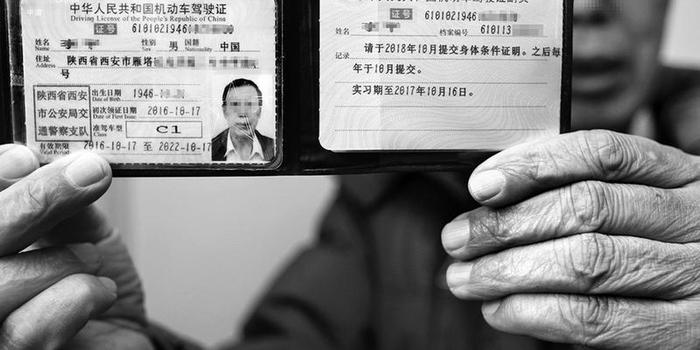 中华人民共和国机动车驾驶证
Driving License of the People's Republic of China
证号 6101021946
姓名 Name
性别 Sex 男 国籍 Nationality 中国
住址 Address 陕西省西安市雁塔
号
陕西省西安
市公安局交
通警察支队
出生日期 Date of Birth 1946-
初次领证日期 Date of First Issue 2016-10-17
准驾车型 Class C1
有效期限 Valid Period 2016-10-17 至 2022-10-17
证号 6101021946
姓名 档案编号 610113
记录 请于2018年10月提交身体条件证明。之后每
年于10月提交。
实习期至2017年10月16日。